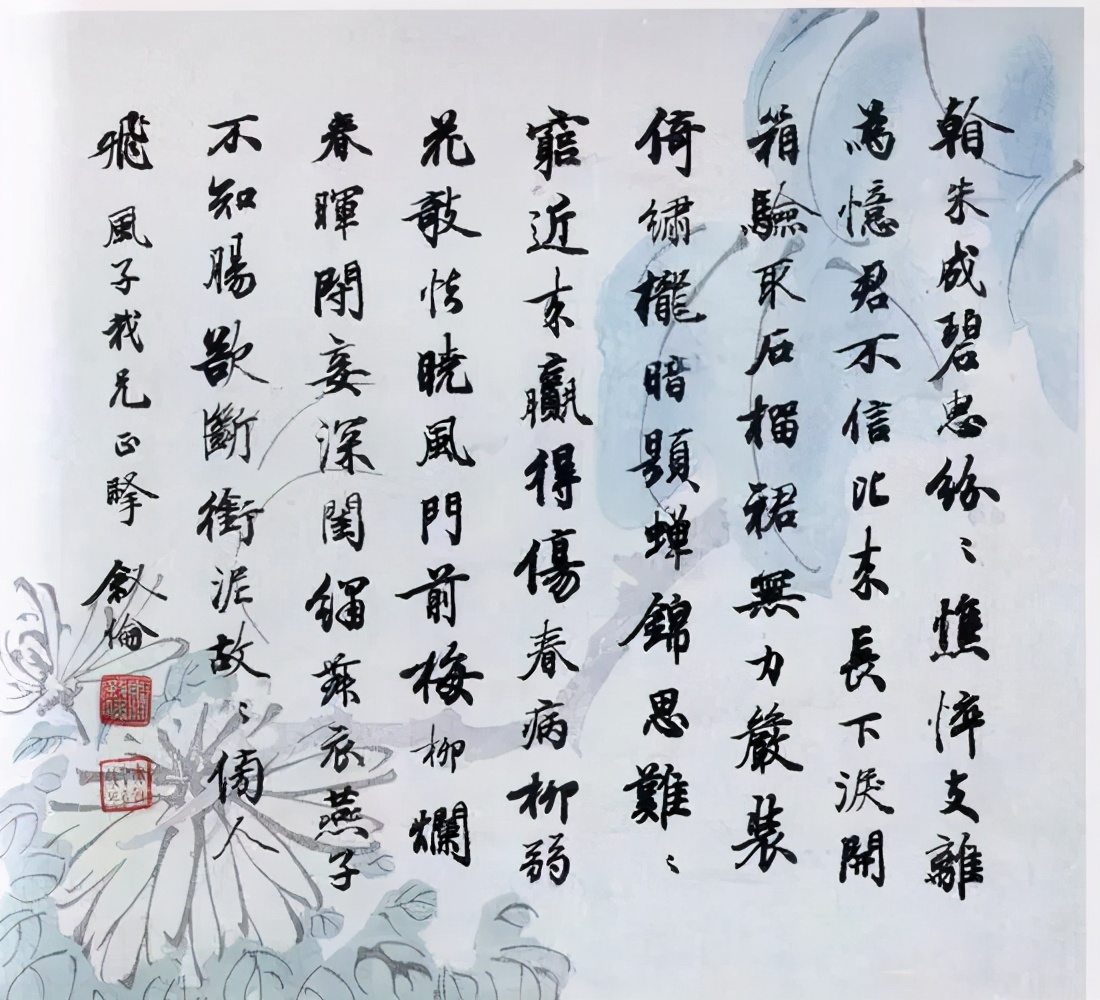 看朱成碧惠紛〻憔悴支離
為憶君不信比来長下淚開
箱驗取石榴裙無力嚴裝
倚繡櫳暗題蟬錦思難〻
窮近来贏得傷春病柳弱
花敧怯曉風門前梅柳爛
春暉閉妾深閨繡舞衣燕子
不知腸欲斷銜泥故〻傍人
飛 風子我兄正 叙倫